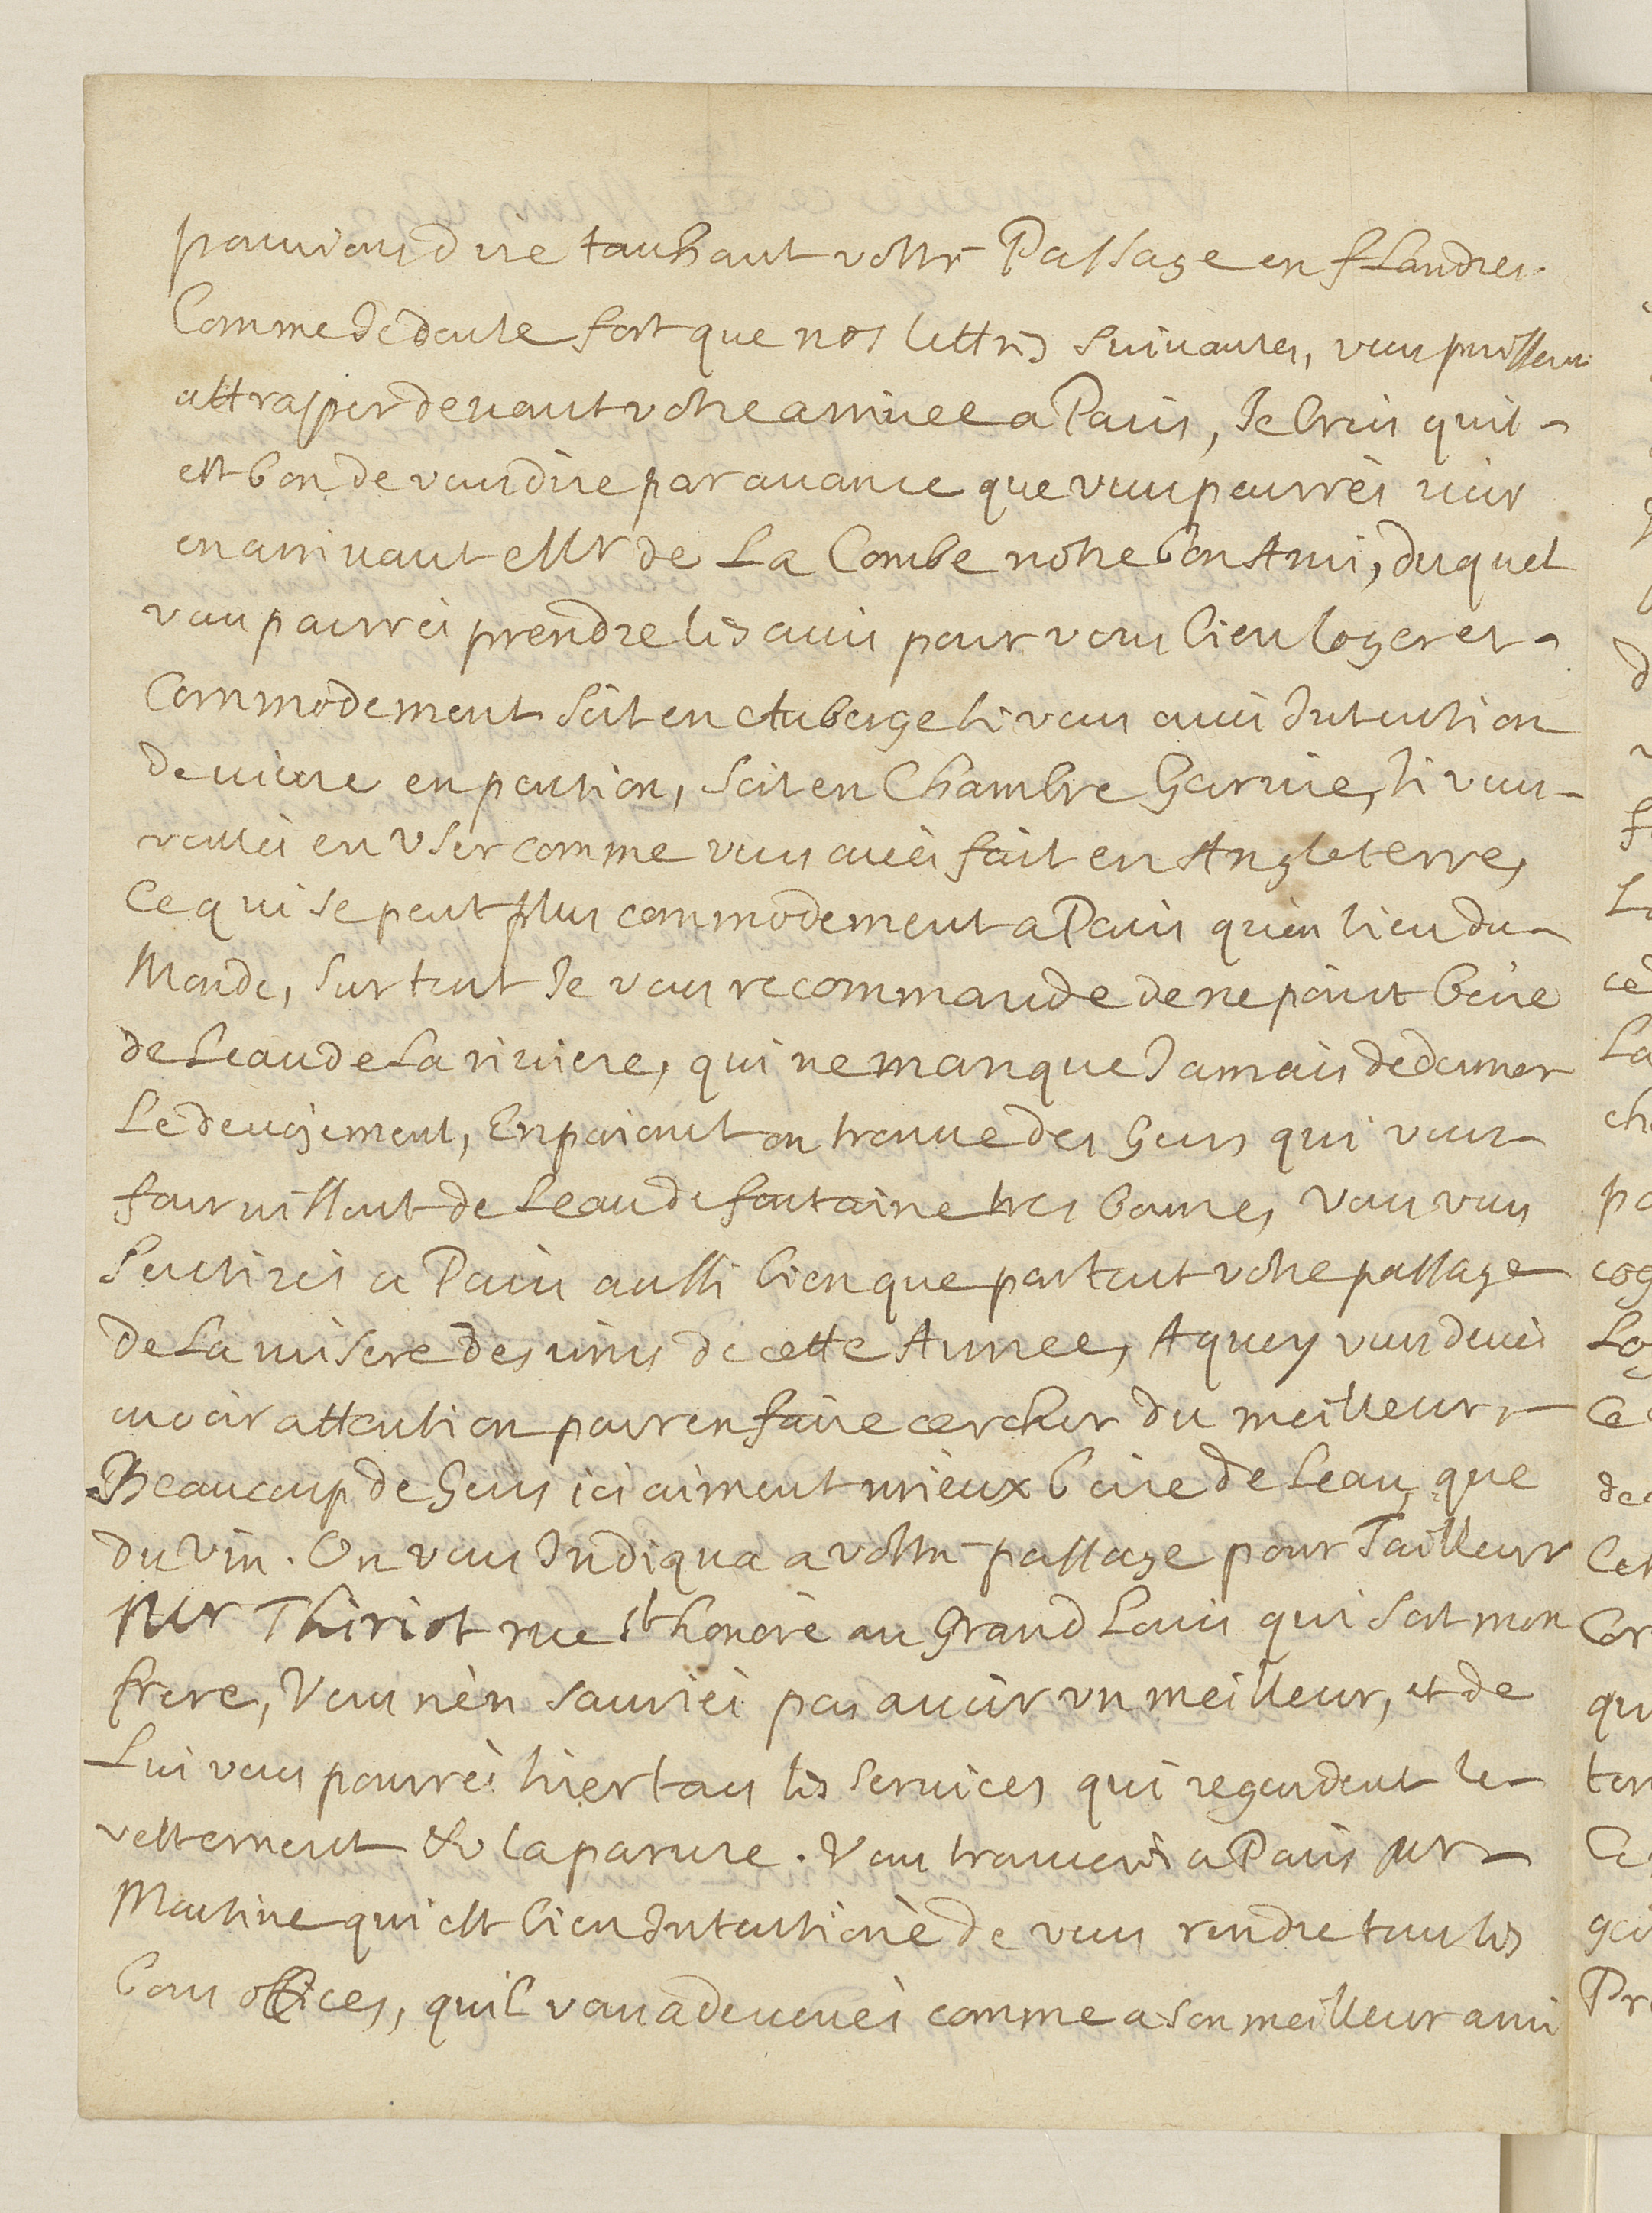 pouvions dire touchant vostre Passage en flandres.
Comme Je doute fort que nos lettres suivantes, vous puissent
attrapper devant votre arrivee a Paris, Je Crois quil
est bon de vous dire par avance que vous pourrès voir
en arrivant Mr de La Combe notre bon Ami, duquel
vous pourrés prendre les avis pour vous bien loger et
Commodement soit en Auberge si vous avés Intention
de vivre en pention, soit en Chambre Garnie, si vous
voulés en User comme vous aviés fait en Angleterre,
Ce qui se peut plus commodement a Paris qu'en lieu du
Monde, sur tout Je vous recommande de ne point boire
de Leau de La riviere, qui ne manque Jamais de donner
Le devoyement, En paiant on trouve des Gens qui vous
fournissent de Leau de fontaine tres bonne, Vous vous
sentirés a Paris aussi bien que partout votre passage
de La misere des vins de cette Annee, A quoy vous devés
avoir attention pour en faire cercher du meilleur,
Beaucoup de Gens ici aiment mieux boire de Leau, que
du Vin. On vous Indiqua a vostre passage pour Tailleur
Mr Thiriot rue St honoré au Grand Louis qui sert mon
frere, Vous nèn sauriés pas avoir un meilleur, et de
Lui vous pourrés tirer tous les services qui regardent le
vettement & la parure. Vous trouverés a Paris Mr
Martine qui est bien Intentioné de vous rendre tous les
bons offices, quil vous a devoués comme a son meilleur ami